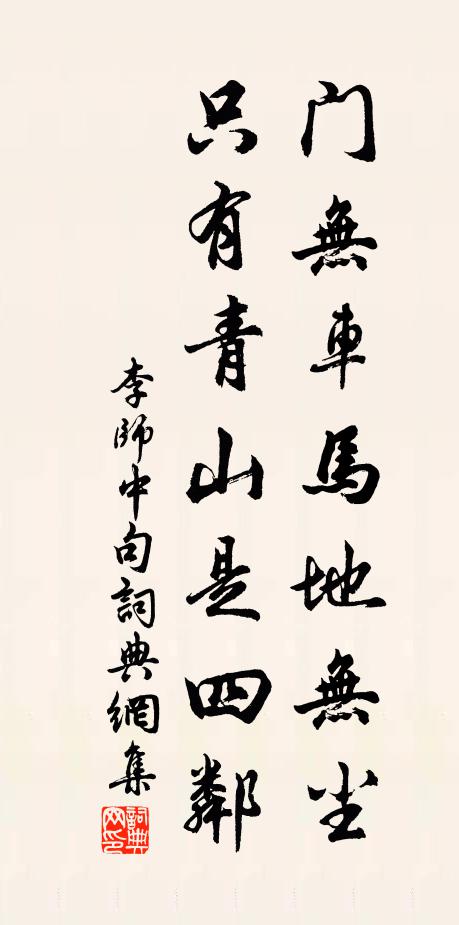 門無車馬地無尘
只有青山是四鄰
李師中句詞典網集
詞典网印